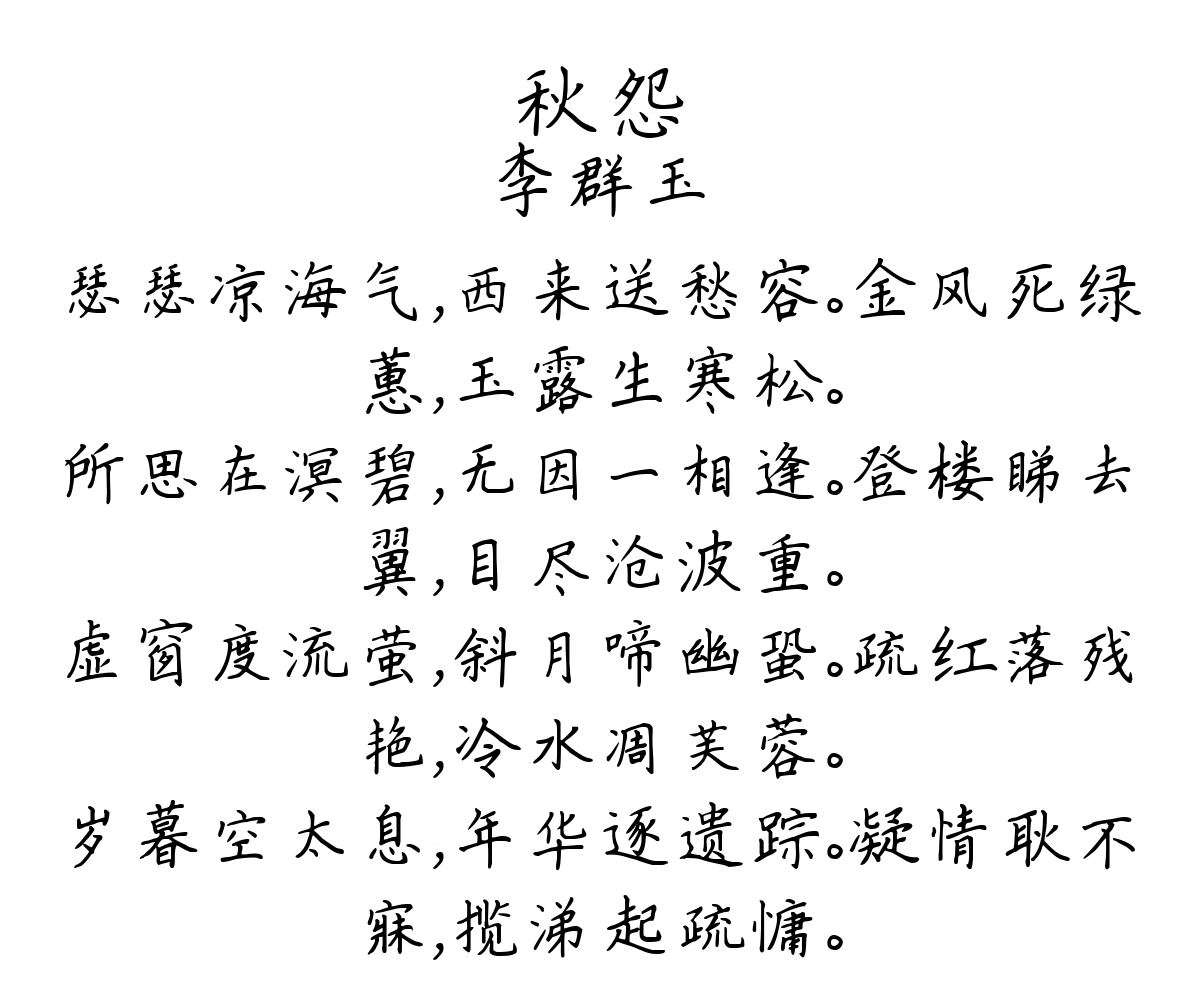 秋怨
李群玉
瑟瑟凉海气,西来送愁容。金风死绿
蕙,玉露生寒松。
所思在溟碧,无因一相逢。登楼睇去
翼,目尽沧波重。
虚窗度流萤,斜月啼幽蛩。疏红落残
艳,冷水凋芙蓉。
岁暮空太息,年华逐遗踪。凝情耿不
寐,揽涕起疏慵。